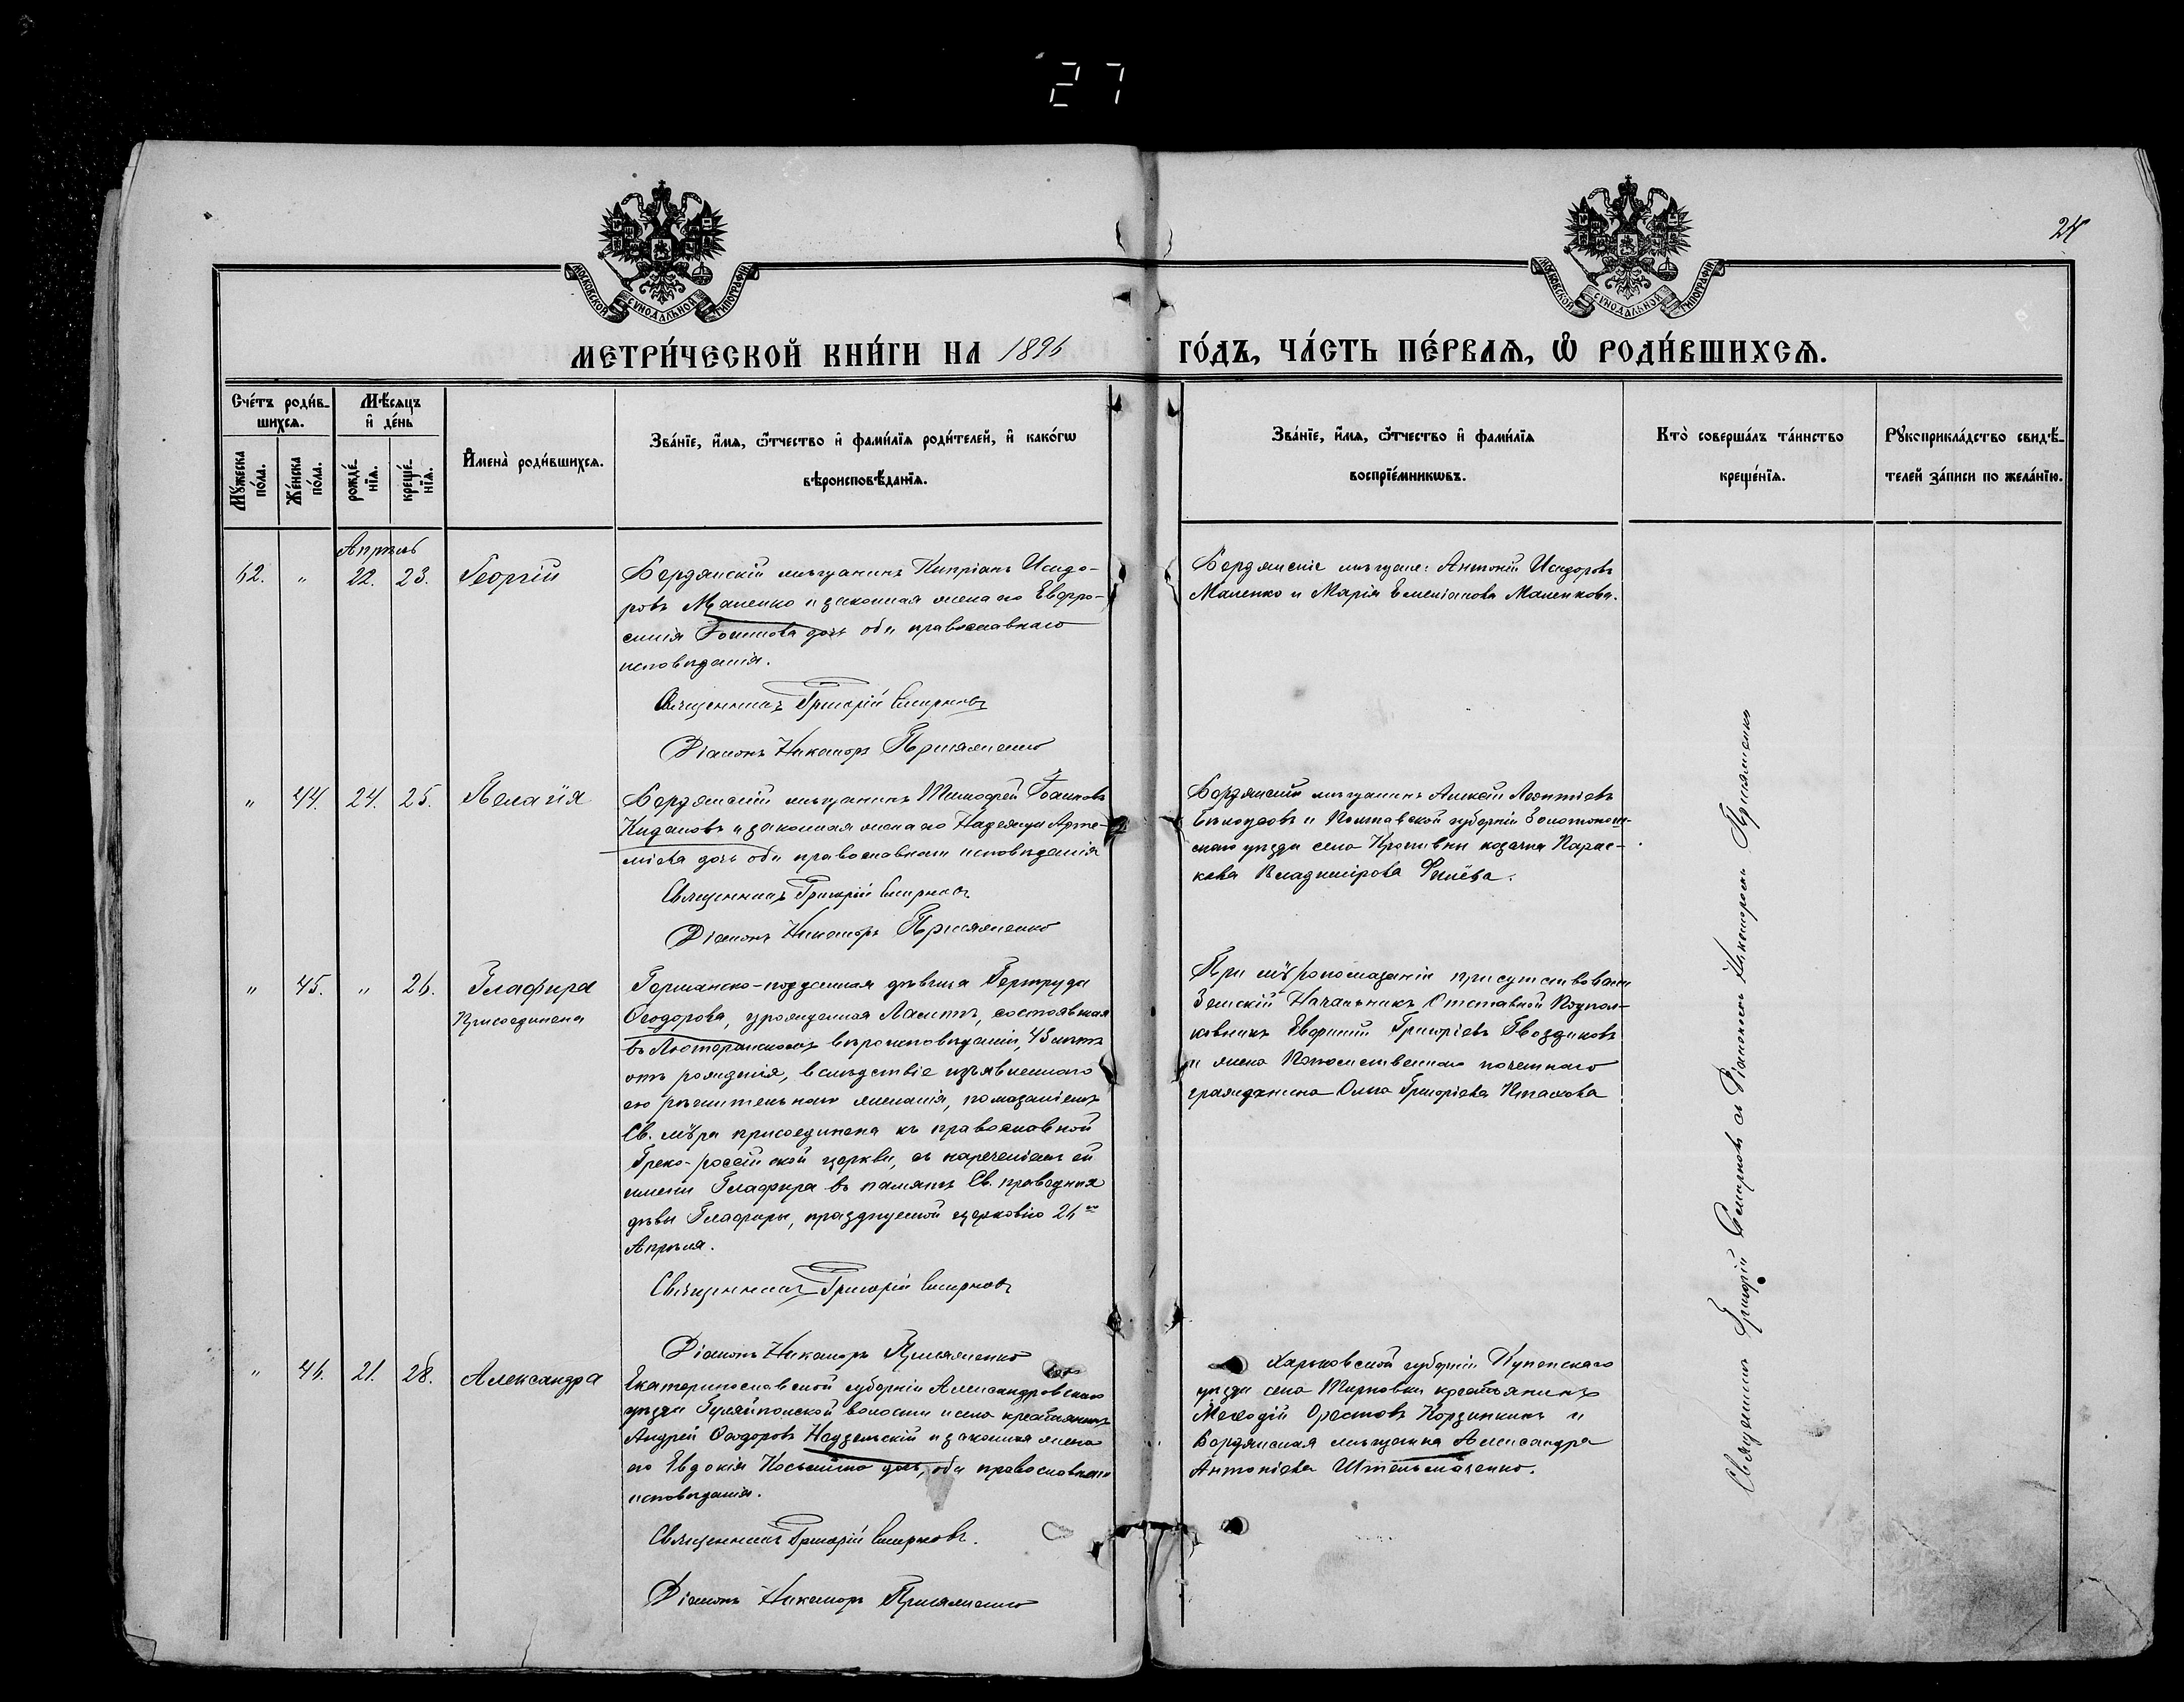 27
24
МОСКОВСКОЙ СУНОДАЛЬНОЙ ТИПОГРАФІИ
МОСКОВСКОЙ СУНОДАЛЬНОЙ ТИПОГРАФІИ
МЕТРИ́ЧЕСКОЙ КНИ́ГИ НА 1896 ГО́ДЪ, ЧА́СТЬ ПЕ́РВАѦ, Ѡ҆ РОДИ́ВШИХСѦ.
Сче́тъ роди́в-
шихсѧ.
Мѣ́сѧцъ
и҆ де́нь
Мꙋ́жеска
по́ла.
Же́нска
по́ла.
рожде́-
нїѧ.
креще́-
нїѧ.
И҆мена̀ роди́вшихсѧ.
Зва́нїе, и҆́мѧ, ѻ҆́тчество и҆ фами́лїѧ роди́телей, и҆ како́гѡ
вѣроисповѣ́данїѧ.
Зва́нїе, и҆́мѧ, ѻ҆́тчество и҆ фами́лїѧ
воспрїе́мникѡвъ.
Кто̀ соверша́лъ та́инство
креще́нїѧ.
Рꙋкоприкла́дство свидѣ́-
телей за́писи по жела́нїю.
Апрѣль
62. " 22. 23. Георгій
Бердянскій мѣщанинъ Кипріанъ Исидо-
ровъ Маленко и законная жена его Евфро-
синія дочь оба православнаго
исповѣданія.
Священникъ Григорій Смирновъ
Діаконъ Никаноръ Присяженко
Бердянскіе мѣщане: Антоній Исидоровъ
Маленко и Марія Емеліанова Маленкова.
" 44. 24. 25. Пелагія
Бердянскій мѣщанинъ Тимофей Іоанновъ
Кидаловъ и законная жена его Надежда Арте-
міева дочь оба православнаго исповѣданія
Священникъ Григорій Смирновъ
Діаконъ Никаноръ Присяженко
Бердянскій мѣщанинъ Алексій Леонтіевъ
Бѣлоусовъ и Полтавской губерніи Золотонош-
скаго уѣзда села Кропивны козачка Парас-
кева Владимірова
" 45. " 26. Глафира
Присоединена
Германско-подданная дѣвица Гертруда
Ѳеодорова, урожденная состоявшая
въ Лютеранскомъ вѣроисповѣданіи, 43 лѣтъ
отъ рожденія, вслѣдствіе изъявленнаго
ею рѣшительнаго желанія, помазаніемъ
Св. мѵра присоединена къ православной
Греко-россійской церкви, съ нареченіемъ ей
имени Глафира въ память Св. праведныя
дѣвы Глафиры, празднуемой церковію 26го
Апрѣля.
Священникъ Григорій Смирновъ
Діаконъ Никаноръ Присяженко
При мѵропомазаніи присутствовали
Земскій Начальникъ Отставной Подпол-
ковникъ Евфимій Григоріевъ Гвоздиковъ
и жена Потомственнаго почетнаго
гражданина Ольга Григоріева
" 46. 21. 28. Александра
Екатеринославской губерніи Александровскаго
уѣзда Гуляйпольской волости и села крестьянинъ
Андрей Ѳеодоровъ и законная жена
его Евдокія дочь, оба православнаго
исповѣданія.
Священникъ Григорій Смирновъ.
Діаконъ Никаноръ Присяженко
Харьковской губерніи Купенскаго
уѣзда села крестьянинъ
Меѳодій Орестовъ Корзинкинъ и
Бердянская мѣщанка Александра
Антоніева
Священникъ Григорій Смирновъ съ Діакономъ Никаноромъ Присяженко